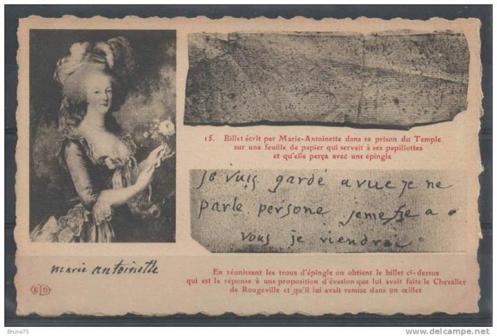 15. Billet écrit par Marie-Antoinette dans sa prison du Temple
sur une feuille de papier qui servait à ses papillottes
et qu'elle perça avec une épingle
je vuis gardé a vue je ne
parle persone jeme fie a
vous je viendrai
marie antoinette
En réunissant les trous d'épingle on obtient le billet ci-dessus
qui est la réponse à une proposition d'évasion que lui avait faite le Chevalier
de Rougeville et qu'il lui avait remise dans un œillet
ELD
Bruno75